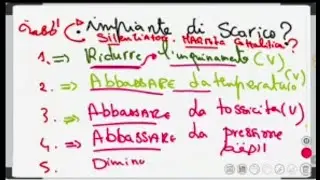 impiante di Scarico?
Silenziatore MARMITTA Catalitica?
1. => Ridurre l'inquinamento (V)
2. => ABBASSARE da temperatura (V)
3. => ABBASSARE da tossicità (V)
4. => ABBASSARE da pressione
5. Diminu